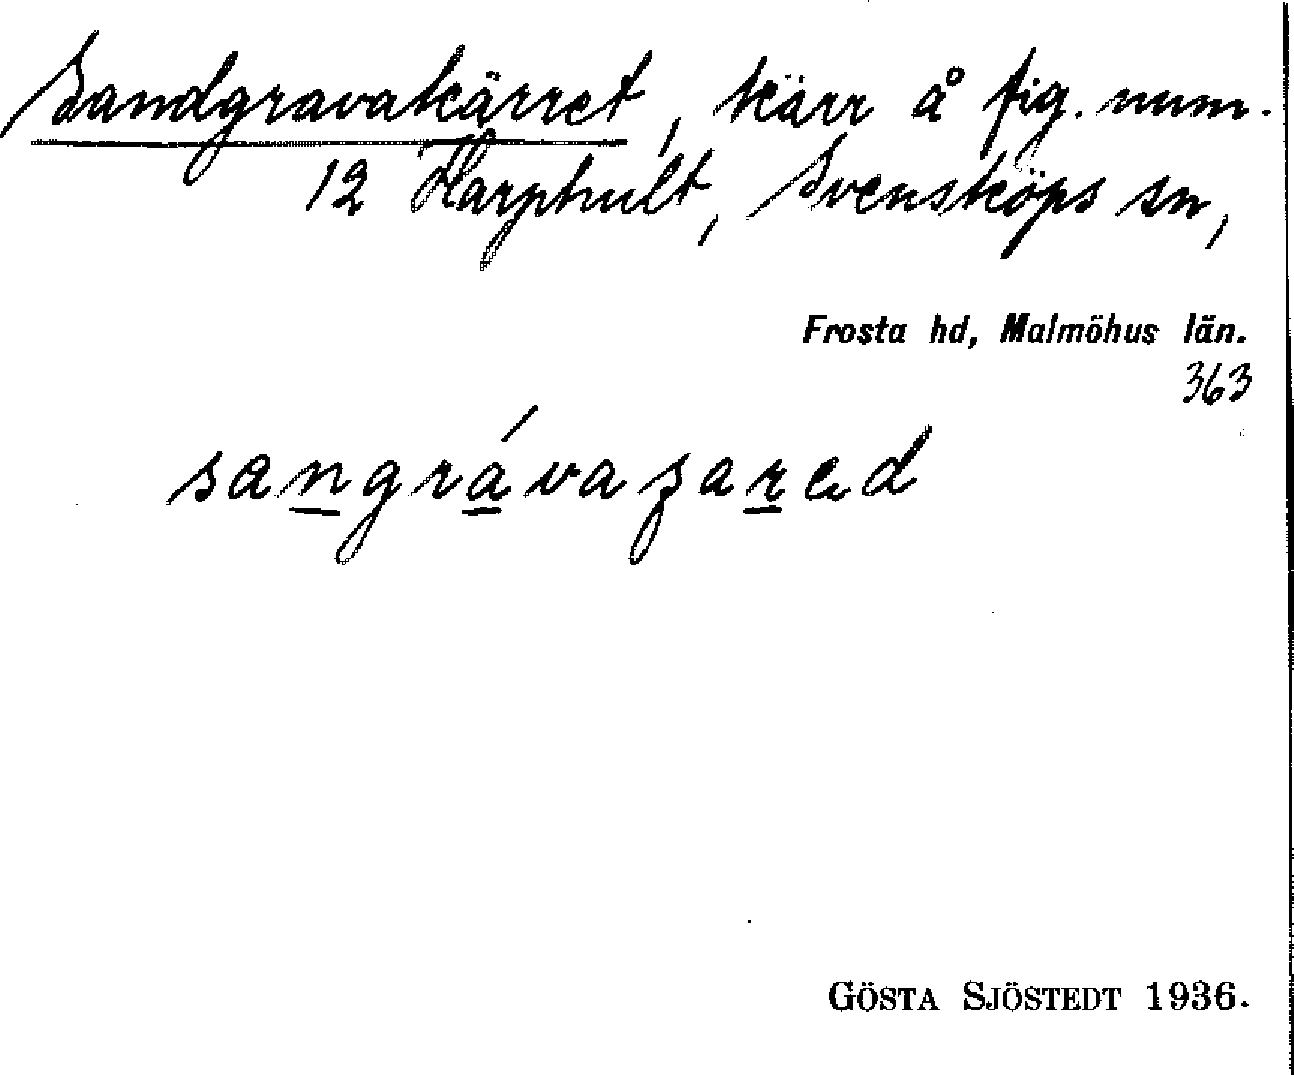 Sandgravakärret, kärr å fig. num.
12 Harphult, Svensköps sn,
Frosta hd, Malmöhus län.
363
sangrávaʂared
GÖSTA SJÖSTEDT 1936.